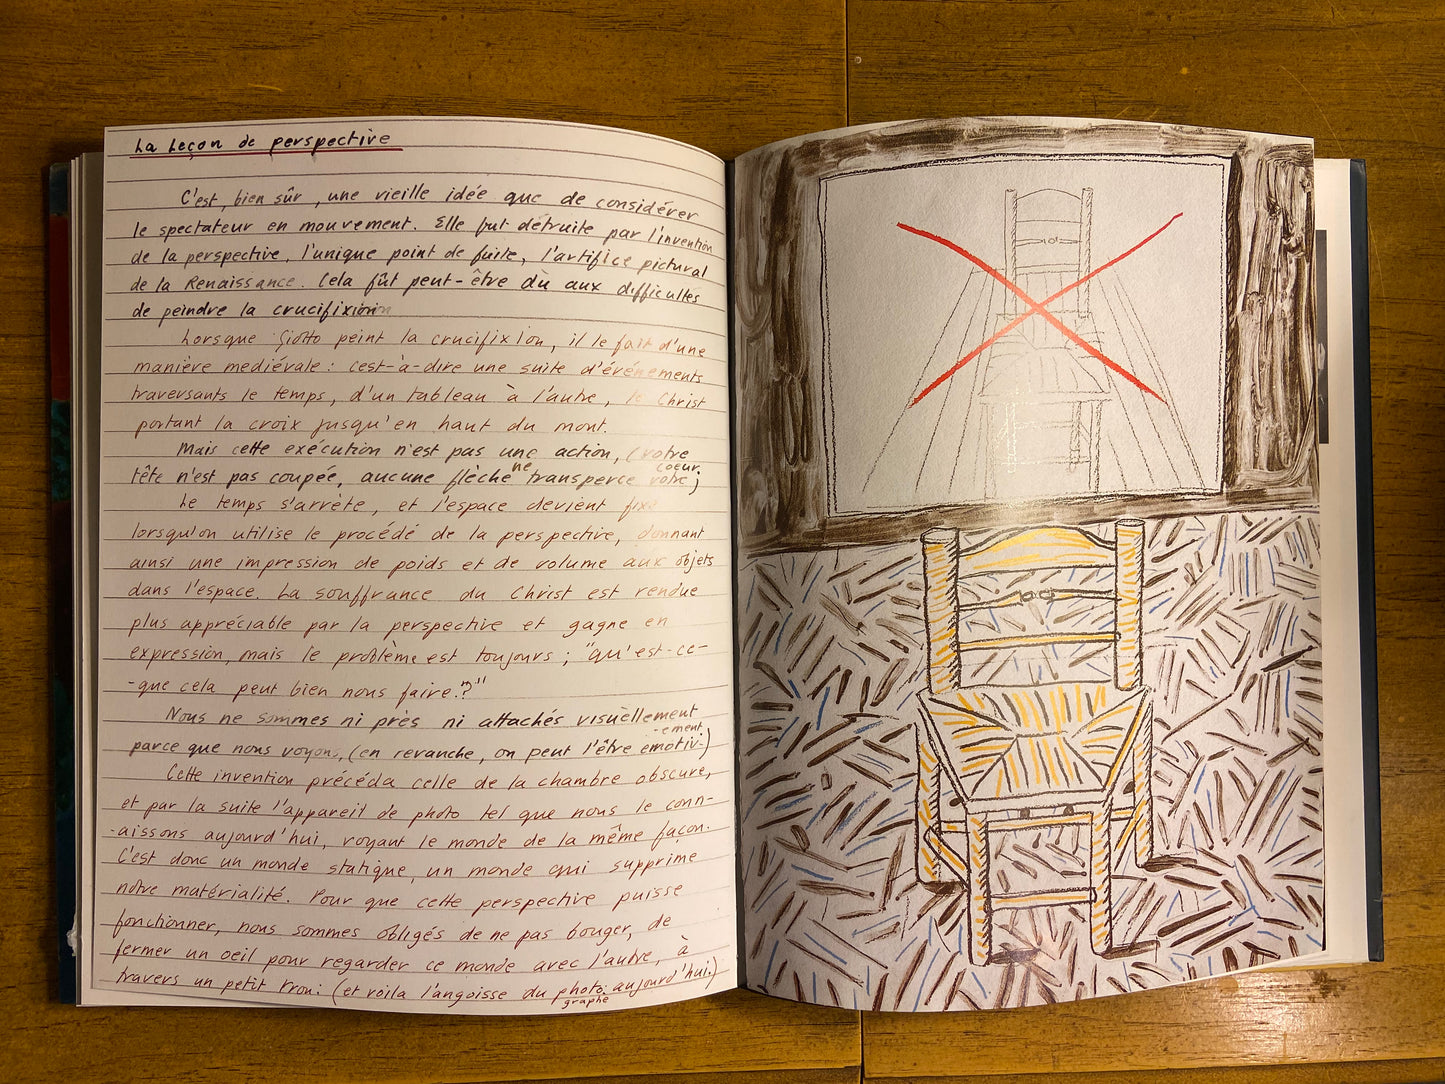 La Leçon de perspective
C'est, bien sûr, une vieille idée que de considérer
le spectateur en mouvement. Elle fut détruite par l'invention
de la perspective, l'unique point de fuite, l'artifice pictural
de la Renaissance. Cela fût peut-être dû aux difficultés
de peindre la crucifixion
Lorsque Giotto peint la crucifixion, il le fait d'une
manière mediévale : cest-à-dire une suite d'événements
traversants le temps, d'un tableau à l'autre, le Christ
portant la croix jusqu'en haut du mont.
Mais cette exécution n'est pas une action, (votre
tête n'est pas coupée, aucune flèche ne transperce votre coeur;
Le temps s'arrête, et l'espace devient fixe
lorsqu'on utilise le procédé de la perspective, donnant
ainsi une impression de poids et de volume aux objets
dans l'espace. La souffrance du Christ est rendue
plus appréciable par la perspective et gagne en
expression, mais le problème est toujours ; "qu'est-ce-
-que cela peut bien nous faire.?"
Nous ne sommes ni près ni attachés visuellement
parce que nous voyons, (en revanche, on peut l'être émotiv-ement)
Cette invention précéda celle de la chambre obscure,
et par la suite l'appareil de photo tel que nous le conn-
-aissons aujourd'hui, voyant le monde de la même façon.
C'est donc un monde statique, un monde qui supprime
nôtre matérialité. Pour que cette perspective puisse
fonctionner, nous sommes obligés de ne pas bouger, de
fermer un oeil pour regarder ce monde avec l'autre, à
travers un petit trou: (et voila l'angoisse du photographe aujourd'hui.)